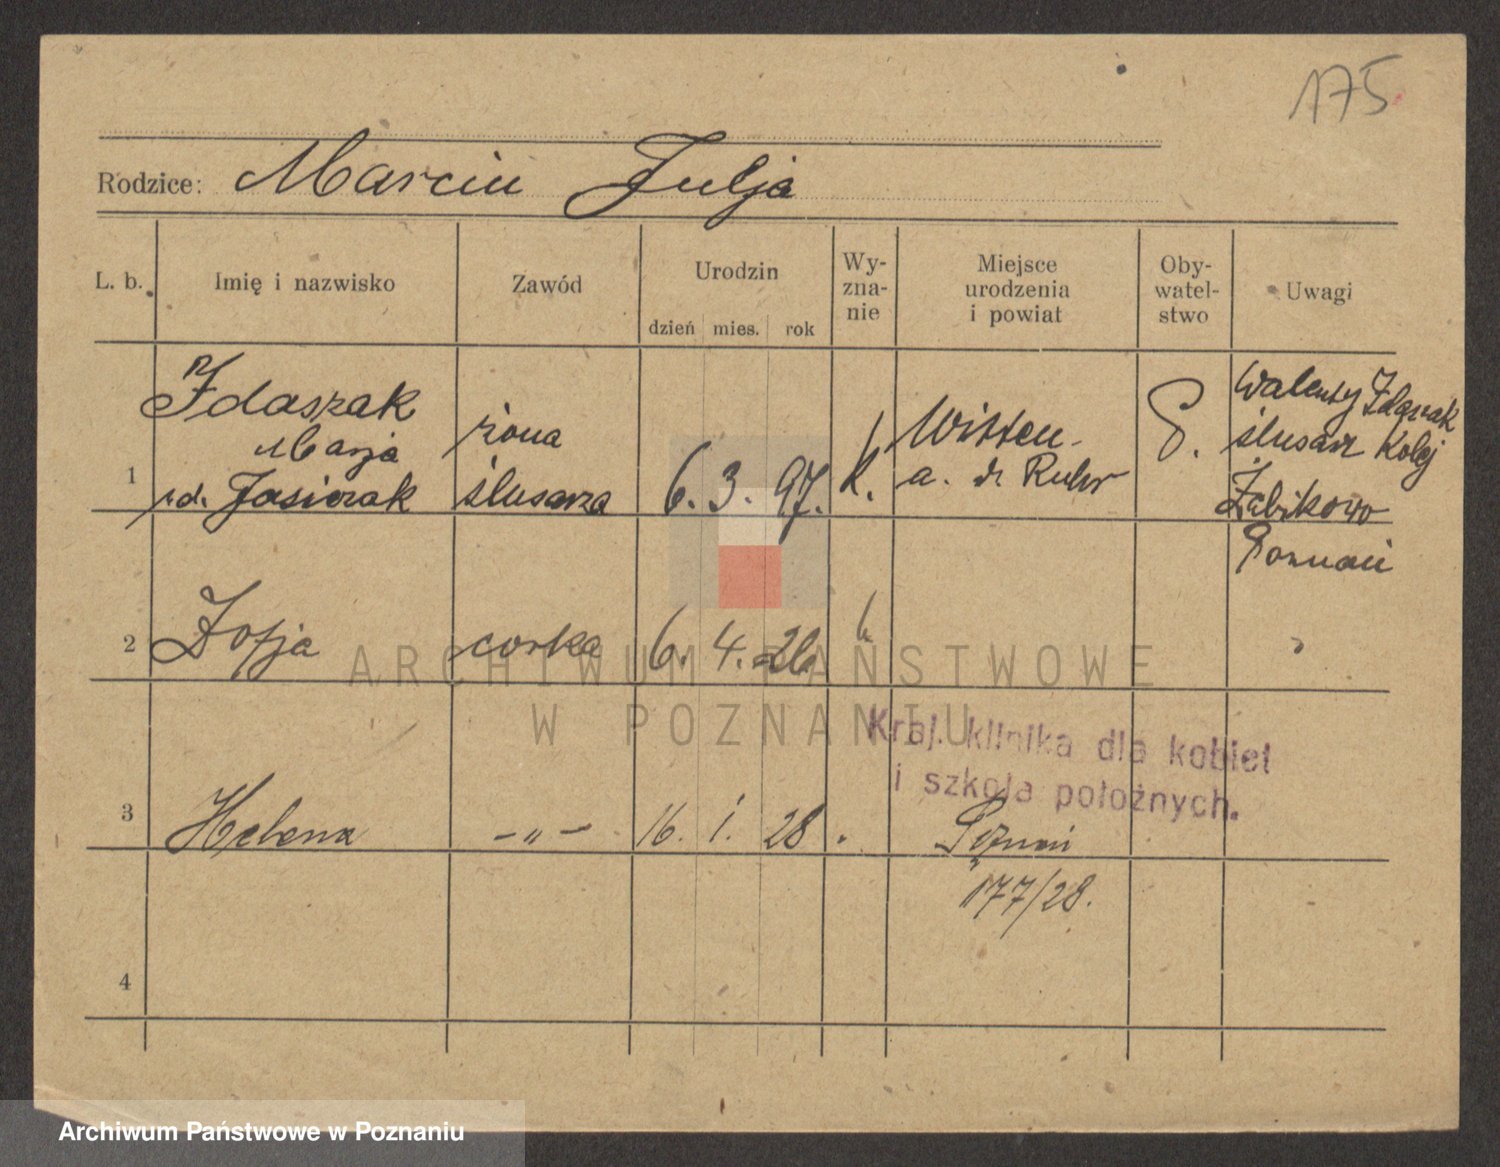 175
Rodzice: Marcin Julja
L. b.
Imię i nazwisko
Zawód
Urodzin
dzień mies. rok
Wy-
zna-
nie
Miejsce
urodzenia
i powiat
Oby-
watel-
stwo
Uwagi
1
Zdaszak
Marja
Jasiczak
żona
ślusarza
6. 3. 97.
k.
Witten
a. d Ruhr
P.
Walenty
ślusarz Kolej
Żabikowo
Poznań
2
Zofja
corka
6. 4. 26
k
3
Helena
-„-
16. 1. 28
Kraj. klinika dla kobiet
i szkoła położnych.
Poznań
177/28.
4
ARCHIWUM PAŃSTWOWE
W POZNANIU
Archiwum Państwowe w Poznaniu